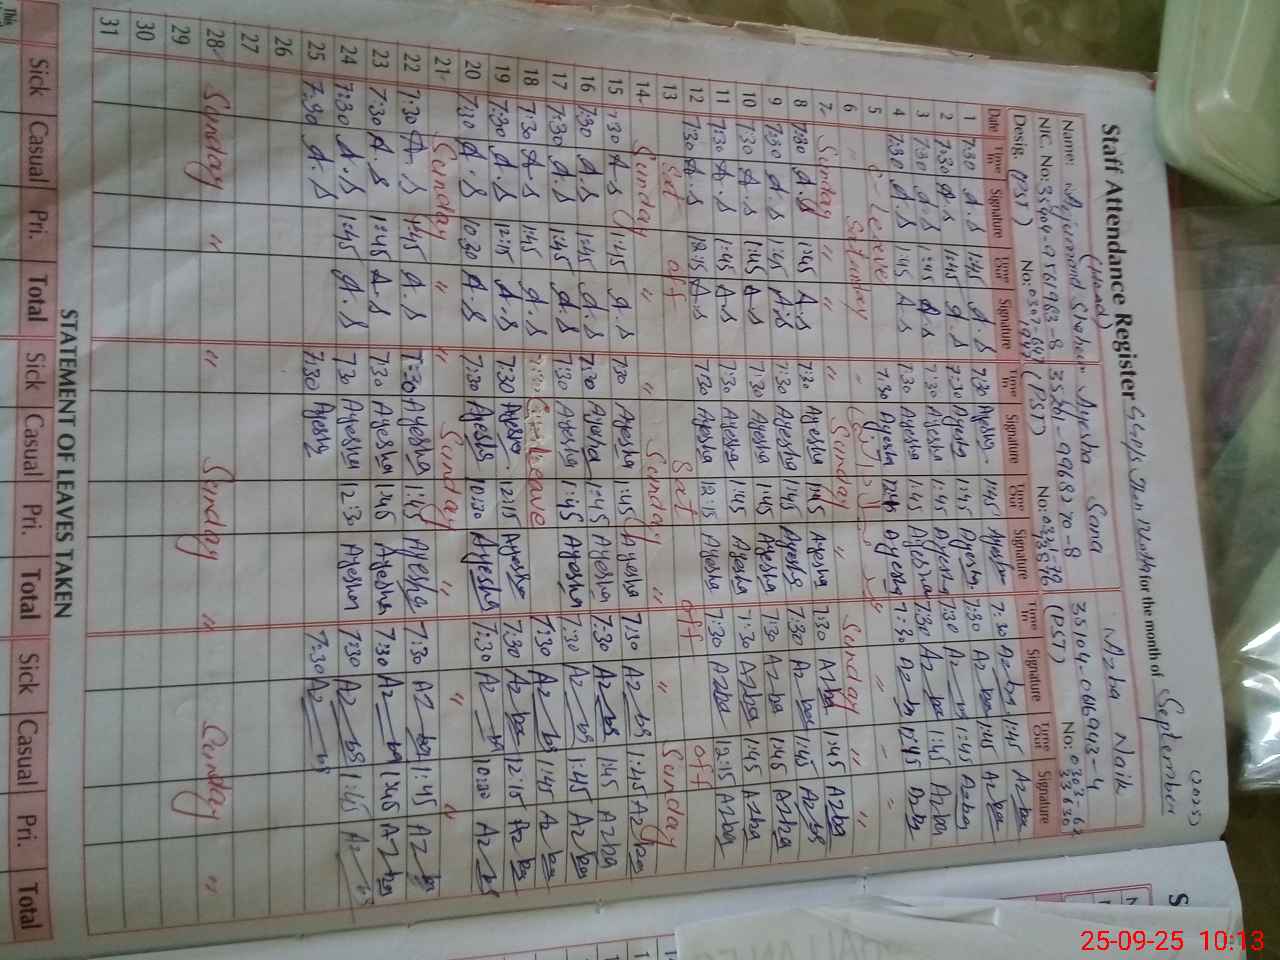 Staff Attendance Register for the month of September (2025)
Name: Shaheen Ayesha Sana Azba Naik
NIC. No: 35201-9968370-8 35104-0616943-4
Desig. (PST) No: (PST) No: (PST) No:
Date Time In Signature Time Out Signature Time In Signature Time Out Signature Time In Signature Time Out Signature
1 7:30 A.S 1:45 A.S 7:30 Ayesha 1:45 Ayesha 7:30 Azba 1:45 Azba
2 7:30 A.S 1:45 A.S 7:30 Ayesha 1:45 Ayesha 7:30 Azba 1:45 Azba
3 7:30 A.S 1:45 A.S 7:30 Ayesha 1:45 Ayesha 7:30 Azba 1:45 Azba
4 7:30 A.S 1:45 A.S 7:30 Ayesha 1:45 Ayesha 7:30 Azba 1:45 Azba
5 C-Leave 7:30 Ayesha Ayesha 7:30 Azba Azba
6 " Saturday "
7 Sunday " " Sunday " Sunday " "
8 7:30 A.S 1:45 A.S 7:30 Ayesha 1:45 Ayesha 7:30 Azba 1:45 Azba
9 7:30 A.S 1:45 A.S 7:30 Ayesha 1:45 Ayesha 7:30 Azba 1:45 Azba
10 7:30 A.S 1:45 A.S 7:30 Ayesha 1:45 Ayesha 7:30 Azba 1:45 Azba
11 7:30 A.S 1:45 A.S 7:30 Ayesha 1:45 Ayesha 7:30 Azba 1:45 Azba
12 7:30 A.S 12:15 A.S 7:30 Ayesha 12:15 Ayesha 7:30 Azba 12:15 Azba
13 Sat off Sat off off
14 Sunday " " Sunday " " Sunday
15 7:30 A.S 1:45 A.S 7:30 Ayesha 1:45 Ayesha 7:30 Azba 1:45 Azba
16 7:30 A.S 1:45 A.S 7:30 Ayesha 1:45 Ayesha 7:30 Azba 1:45 Azba
17 7:30 A.S 1:45 A.S 7:30 Ayesha 1:45 Ayesha 7:30 Azba 1:45 Azba
18 7:30 A.S 1:45 A.S Leave 7:30 Azba 1:45 Azba
19 7:30 A.S 12:15 A.S 7:30 Ayesha 12:15 Ayesha 7:30 Azba 12:15 Azba
20 7:30 A.S 10:30 A.S 7:30 Ayesha 10:30 Ayesha 7:30 Azba 10:30 Azba
21 Sunday " " Sunday " " "
22 7:30 A.S 1:45 A.S 7:30 Ayesha 1:45 Ayesha 7:30 Azba 1:45 Azba
23 7:30 A.S 1:45 A.S 7:30 Ayesha 1:45 Ayesha 7:30 Azba 1:45 Azba
24 7:30 A.S 1:45 A.S 7:30 Ayesha 12:30 Ayesha 7:30 Azba 1:45 Azba
25 7:30 A.S 7:30 Ayesha 7:30 Azba
26
27
28 Sunday " " Sunday " Sunday "
29
30
31
STATEMENT OF LEAVES TAKEN
Sick Casual Pri. Total Sick Casual Pri. Total Sick Casual Pri. Total
This
25-09-25 10:13